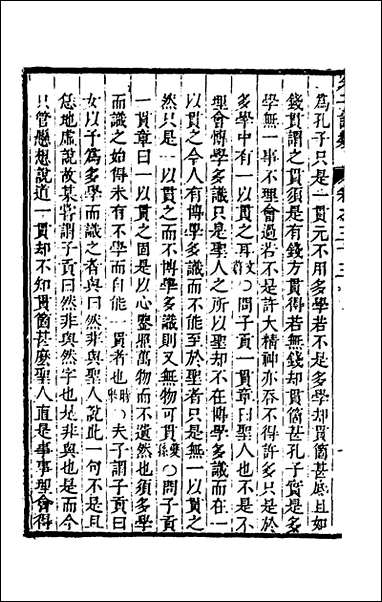 為孔子只是一貫元不用多學若不是多學却貫箇甚底且如
錢貫謂之貫須是有錢方貫得若無錢却貫箇甚孔子實是多
學無一事不理會過若不是許大精神亦吞不得許多只是於
多學中有一以貫之耳 ○問子貢一貫章曰聖人也不是不
理會博學多識只是聖人之所以聖却不在博學多識而在一
以貫之今人有博學多識而不能至於聖者只是無一以貫之
然只是一以貫之而不博學多識則又無物可貫 ○問子貢
一貫章曰一以貫之固是以心鑒照萬物而不遺然也須多學
而識之始得未有不學而自能一貫者也 ○夫子謂子貢曰
女以予為多學而識之者與曰然非與聖人說此一句不是且
恁地虛說故某嘗謂子貢曰然非與然字也是非與也是而今
只管懸想說道一貫却不知貫箇甚麼聖人直是事事理會得